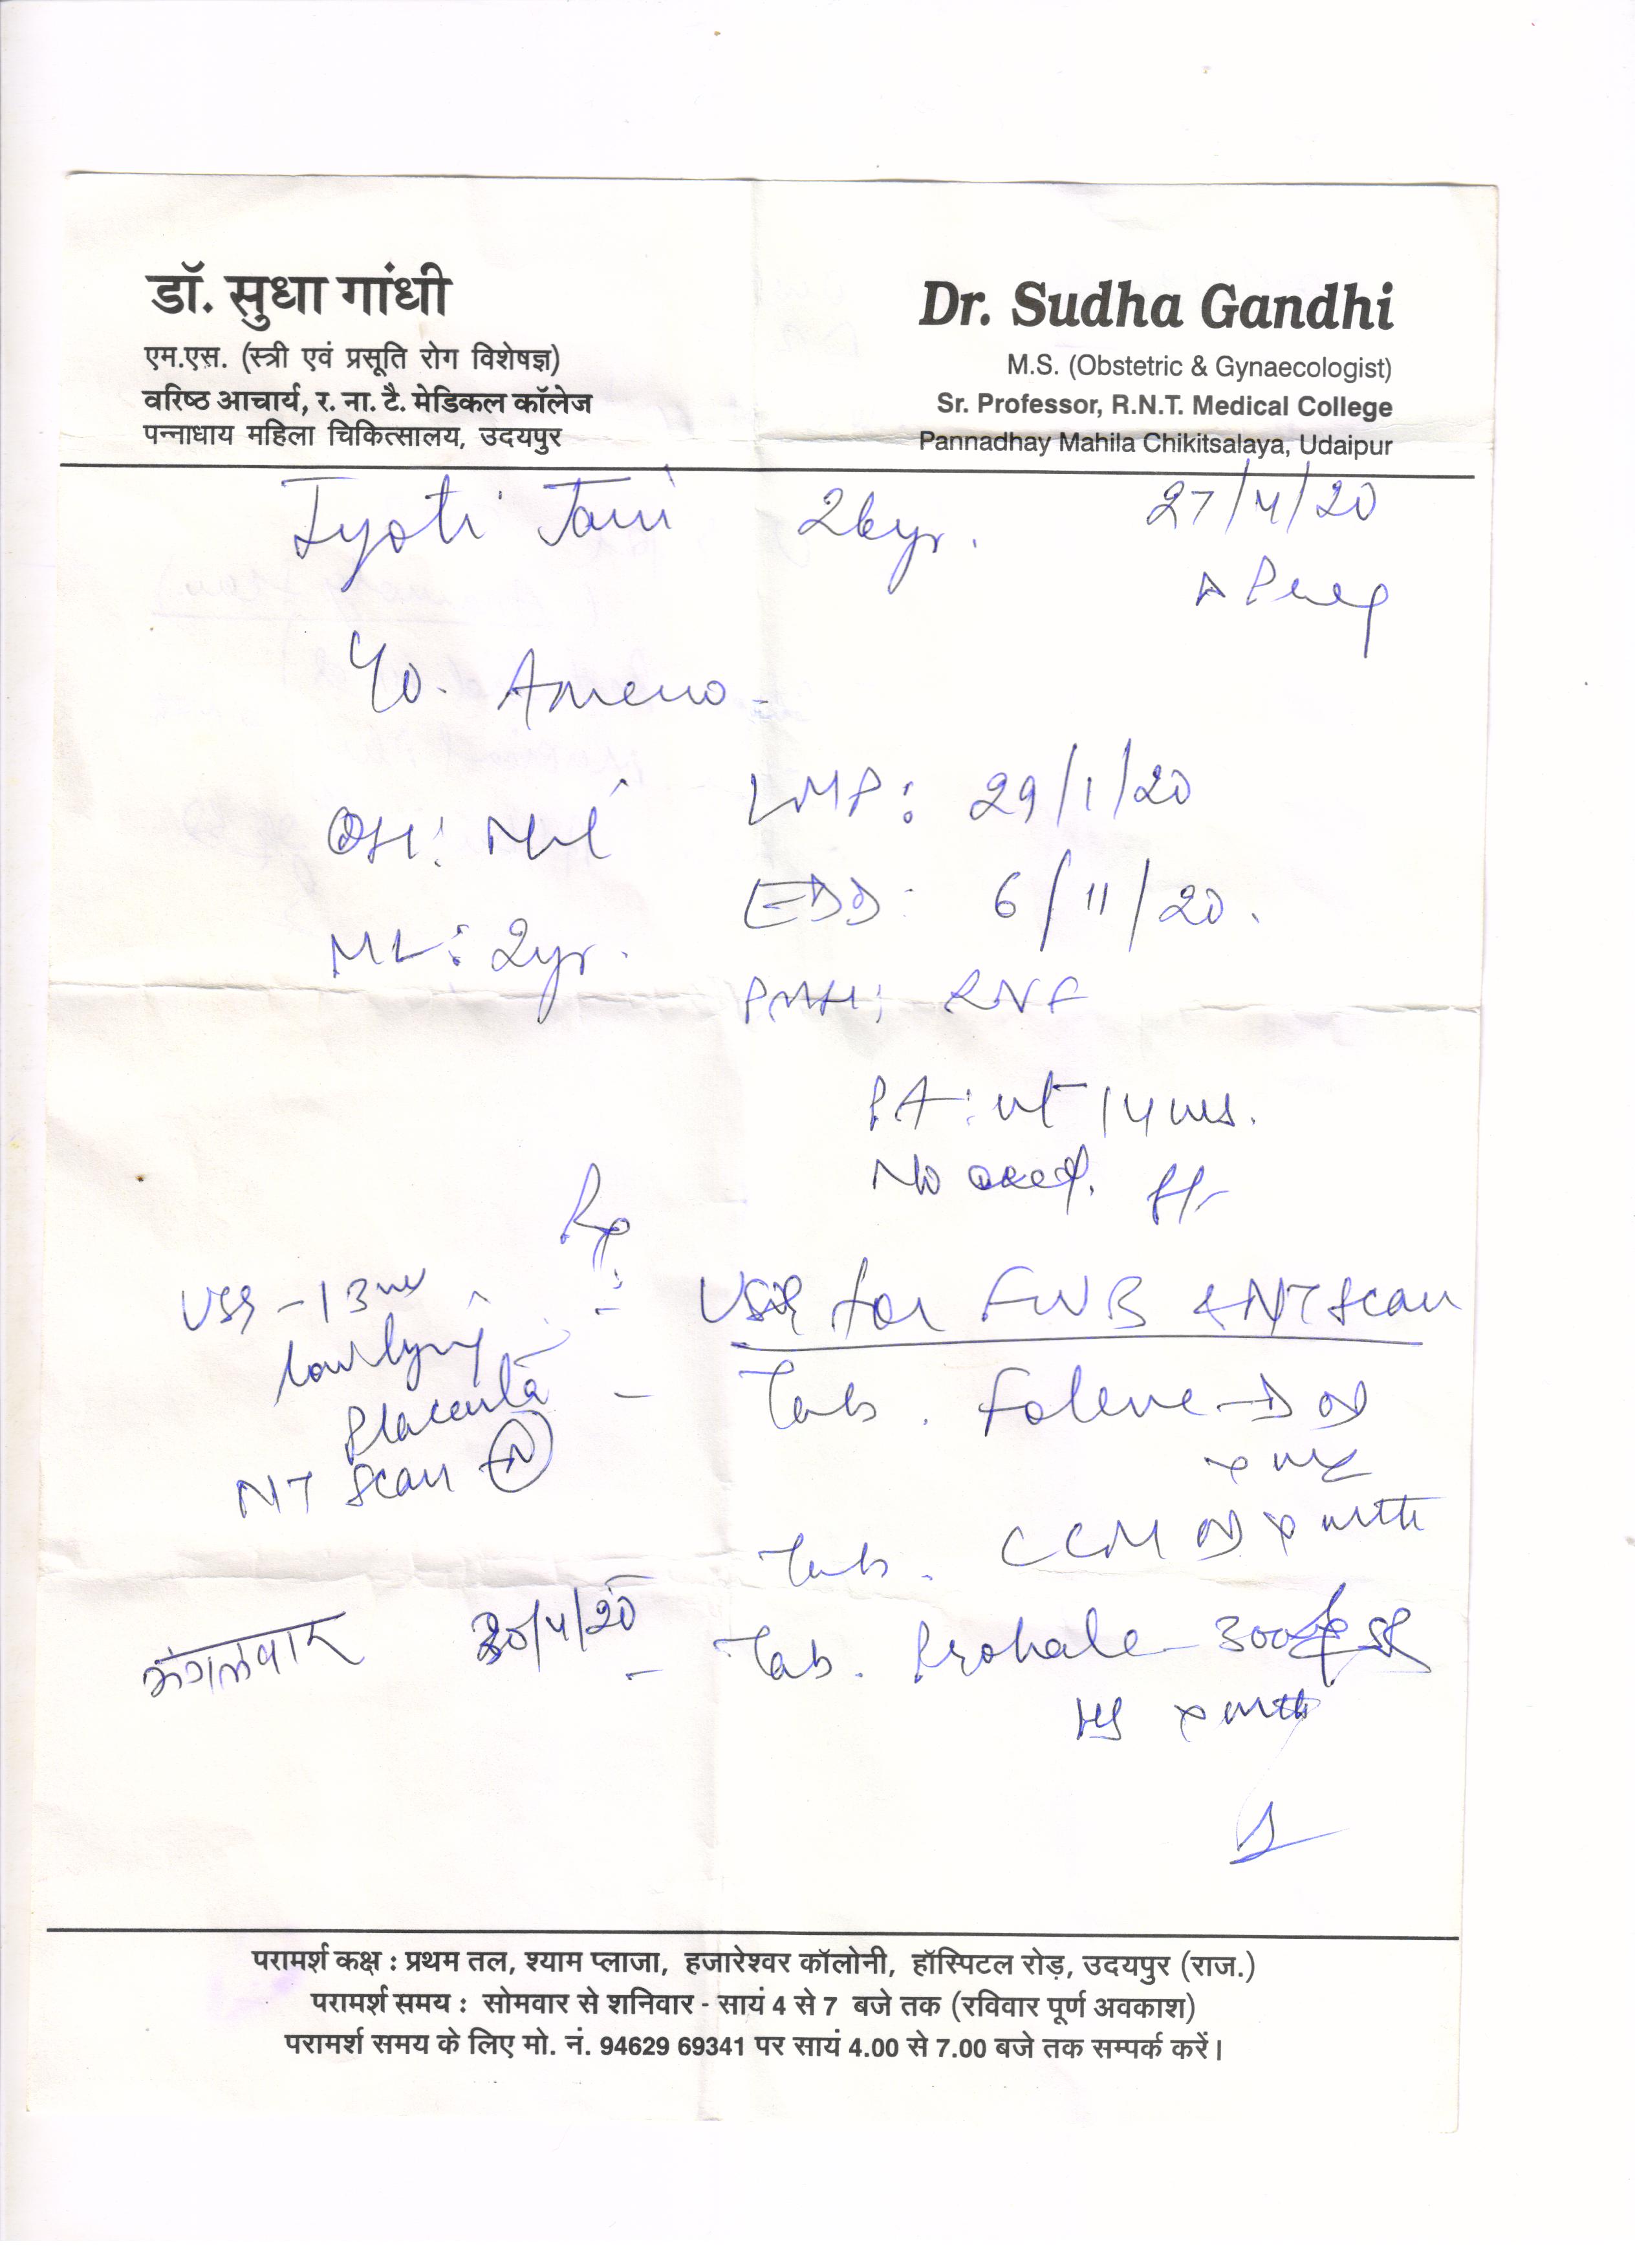 डॉ. सुधा गांधी
एम.एस. (स्त्री एवं प्रसूति रोग विशेषज्ञ)
वरिष्ठ आचार्य, र. ना. टै. मेडिकल कॉलेज
पन्नाधाय महिला चिकित्सालय, उदयपुर
Dr. Sudha Gandhi
M.S. (Obstetric & Gynaecologist)
Sr. Professor, R.N.T. Medical College
Pannadhay Mahila Chikitsalaya, Udaipur
Jyoti 26yr. 27/4/20
Ameno-
LMP: 29/1/20
OH: Nil
EDD: 6/11/20.
ML: 2yr.
PMH: RNF
PA: ut 14 wks.
No
Rx
USG for FWB & NT Scan
USG - 13 wk
low lying
Placenta
NT Scan N
Tab. D OD
Tab. CCM OD x mth
Tab. 300 SR
HS x mth
मंगलवार 30/4/20
परामर्श कक्ष : प्रथम तल, श्याम प्लाजा, हजारेश्वर कॉलोनी, हॉस्पिटल रोड़, उदयपुर (राज.)
परामर्श समय : सोमवार से शनिवार - सायं 4 से 7 बजे तक (रविवार पूर्ण अवकाश)
परामर्श समय के लिए मो. नं. 94629 69341 पर सायं 4.00 से 7.00 बजे तक सम्पर्क करें।